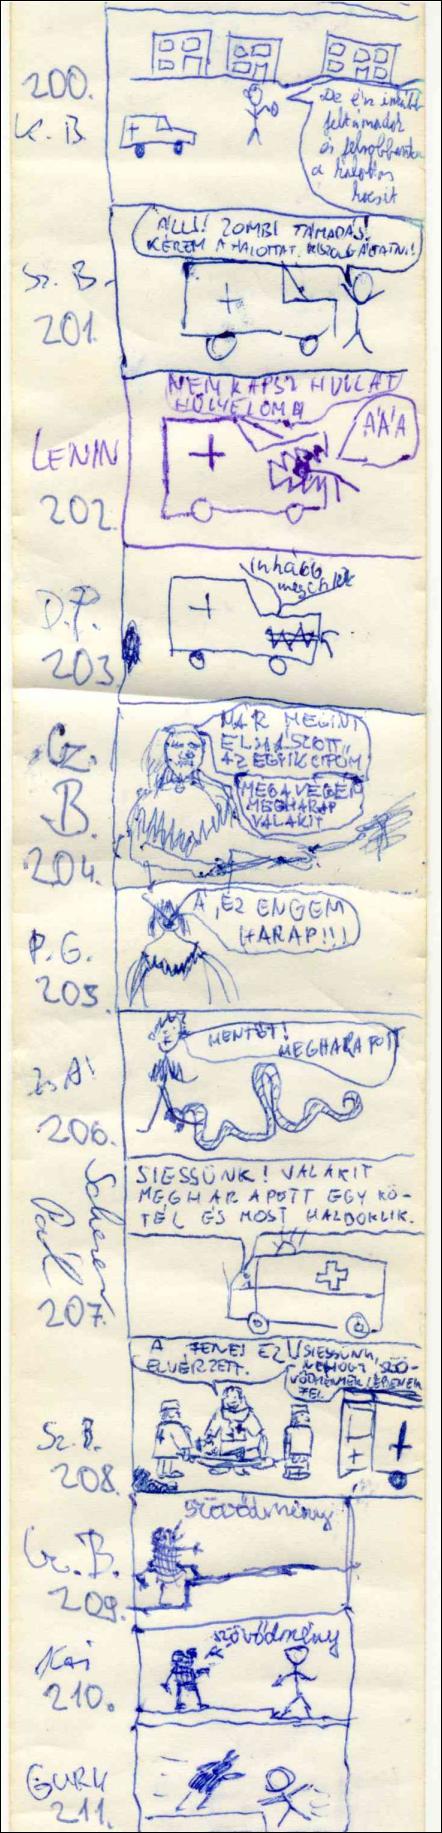 200.
K. B.
De én inkább
feltámadok
és felrobbantom
a halottas
kocsit
Sz. B.
201.
ÁLLJ! ZOMBI TÁMADÁS!
KÉREM A HALOTTAT KISZOLGÁLTATNI!
LENIN
202.
NEM KAPSZ HULLÁT
HÜLYELOMA
ÁÁÁ
D.P.
203
inkább
megszökök
Cz.
B.
204.
MÁR MEGINT
ELMÁSZOTT
AZ EGYIK CIPŐM
MÉG A VÉGÉN
MEGHARAP
VALAKIT
P. G.
205
Á, EZ ENGEM
HARAP!!!
206.
MENTŐT!
MEGHARAPOTT
Scherer
Pál
207.
SIESSÜNK! VALAKIT
MEGHARAPOTT EGY KÖ-
TÉL ÉS MOST HALDOKLIK.
Sz. B.
208.
A FENE! EZ
ELVÉRZETT.
SIESSÜNK,
NEHOGY SZÖ-
VŐDMÉNYEK LÉPJENEK
FEL.
Cz. B.
209.
szövődmény
Kai
210.
szövődmény
GURU
211.